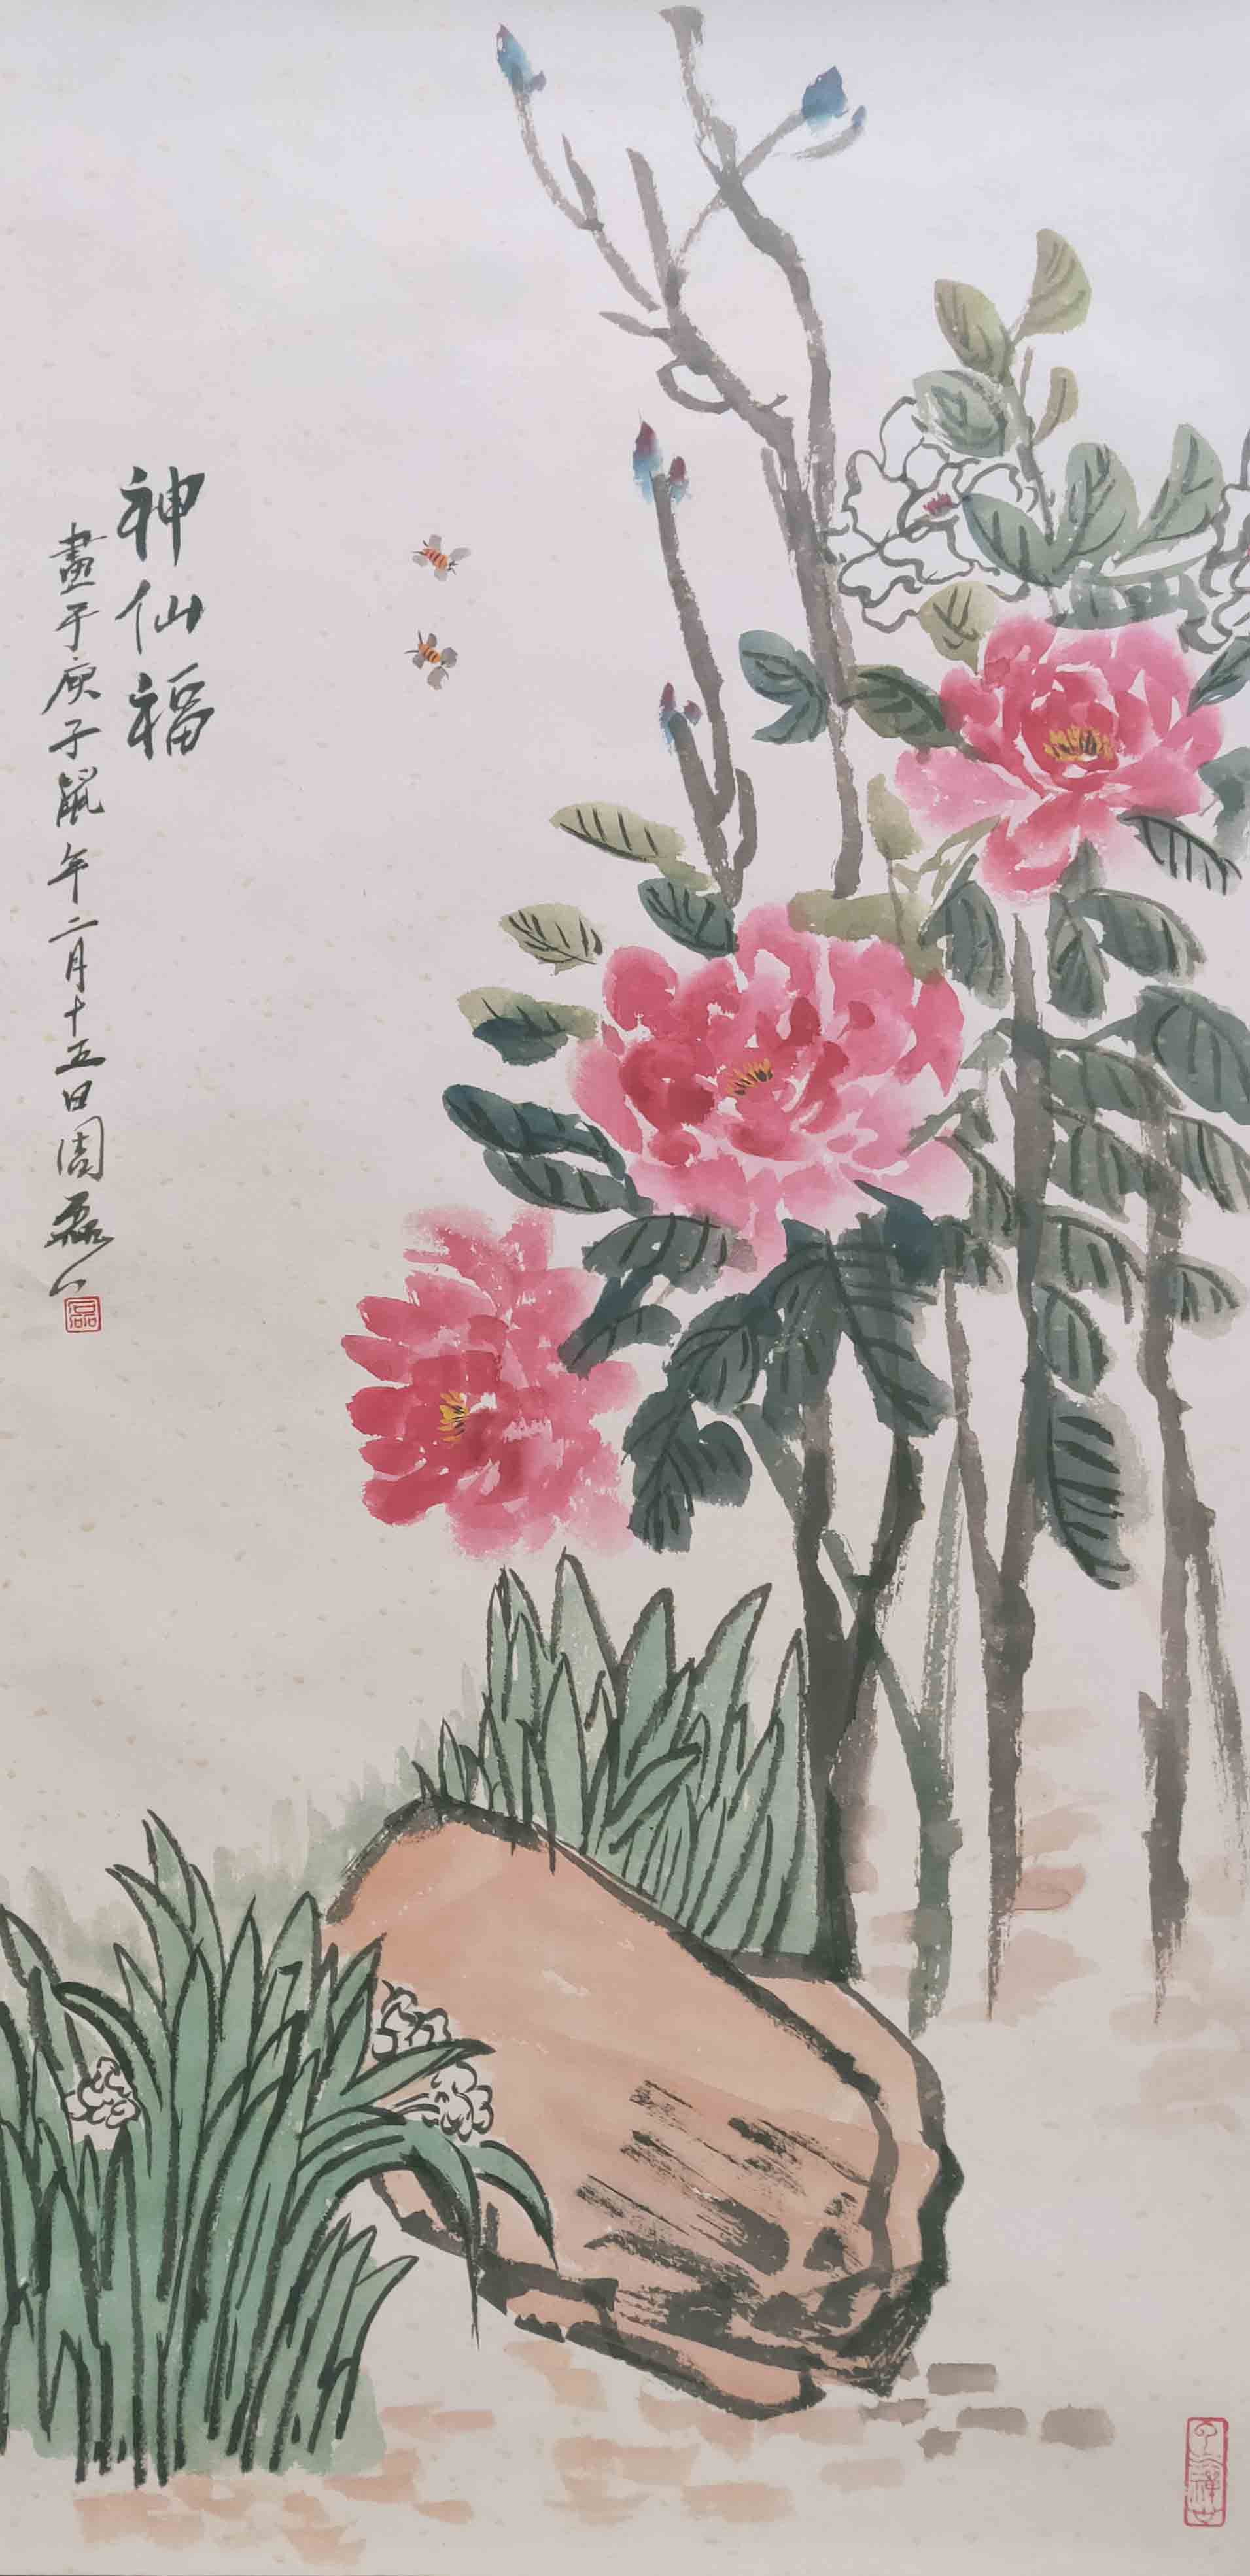 神仙福
畫于庚子鼠年二月十五日周磊
磊